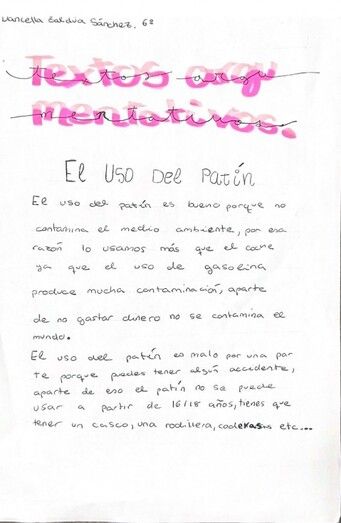 Saldvia Sánchez. 6º
Textos argu
mentativos.
El uso Del Patín
El uso del patín es bueno porque no
contamina el medio ambiente, por esa
razón lo usamos más que el coche
ya que el uso de gasolina
produce mucha contaminación, aparte
de no gastar dinero no se contamina el
mundo.
El uso del patín es malo por una par
te porque puedes tener algún accidente,
aparte de eso el patín no se puede
usar a partir de 16/18 años, tienes que
tener un casco, una rodillera, coderas etc...